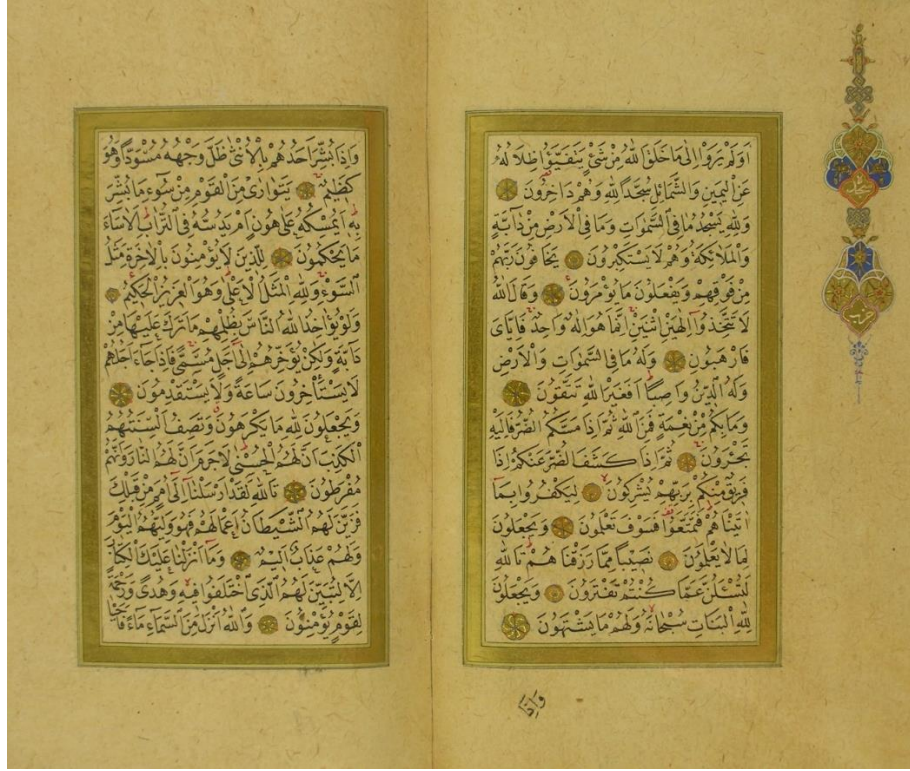 اَوَلَمْ يَرَوْا اِلٰى مَا خَلَقَ اللهُ مِنْ شَيْءٍ يَتَفَيَّؤُا ظِلَالُهُ
عَنِ الْيَمِينِ وَالشَّمَائِلِ سُجَّدًا لِلّٰهِ وَهُمْ دَاخِرُونَ
وَلِلّٰهِ يَسْجُدُ مَا فِي السَّمٰوَاتِ وَمَا فِي الْاَرْضِ مِنْ دَابَّةٍ
وَالْمَلَائِكَةُ وَهُمْ لَا يَسْتَكْبِرُونَ يَخَافُونَ رَبَّهُمْ
مِنْ فَوْقِهِمْ وَيَفْعَلُونَ مَا يُؤْمَرُونَ وَقَالَ اللهُ
لَا تَتَّخِذُوا اِلٰهَيْنِ اثْنَيْنِ اِنَّمَا هُوَ اِلٰهٌ وَاحِدٌ فَاِيَّايَ
فَارْهَبُونِ وَلَهُ مَا فِي السَّمٰوَاتِ وَالْاَرْضِ
وَلَهُ الدِّينُ وَاصِبًا اَفَغَيْرَ اللهِ تَتَّقُونَ
وَمَا بِكُمْ مِنْ نِعْمَةٍ فَمِنَ اللهِ ثُمَّ اِذَا مَسَّكُمُ الضُّرُّ فَاِلَيْهِ
تَجْئَرُونَ ثُمَّ اِذَا كَشَفَ الضُّرَّ عَنْكُمْ اِذَا
فَرِيقٌ مِنْكُمْ بِرَبِّهِمْ يُشْرِكُونَ لِيَكْفُرُوا بِمَا
اٰتَيْنَاهُمْ فَتَمَتَّعُوا فَسَوْفَ تَعْلَمُونَ وَيَجْعَلُونَ
لِمَا لَا يَعْلَمُونَ نَصِيبًا مِمَّا رَزَقْنَاهُمْ تَاللهِ
لَتُسْئَلُنَّ عَمَّا كُنْتُمْ تَفْتَرُونَ وَيَجْعَلُونَ
لِلّٰهِ الْبَنَاتِ سُبْحَانَهُ وَلَهُمْ مَا يَشْتَهُونَ
وَاِذَا
سجده
حزب
وَاِذَا بُشِّرَ اَحَدُهُمْ بِالْاُنْثٰى ظَلَّ وَجْهُهُ مُسْوَدًّا وَهُوَ
كَظِيمٌ يَتَوَارٰى مِنَ الْقَوْمِ مِنْ سُوءِ مَا بُشِّرَ
بِهِ اَيُمْسِكُهُ عَلٰى هُونٍ اَمْ يَدُسُّهُ فِي التُّرَابِ اَلَا سَاءَ
مَا يَحْكُمُونَ لِلَّذِينَ لَا يُؤْمِنُونَ بِالْاٰخِرَةِ مَثَلُ
السَّوْءِ وَلِلّٰهِ الْمَثَلُ الْاَعْلٰى وَهُوَ الْعَزِيزُ الْحَكِيمُ
وَلَوْ يُؤَاخِذُ اللهُ النَّاسَ بِظُلْمِهِمْ مَا تَرَكَ عَلَيْهَا مِنْ
دَابَّةٍ وَلٰكِنْ يُؤَخِّرُهُمْ اِلٰى اَجَلٍ مُسَمًّى فَاِذَا جَاءَ اَجَلُهُمْ
لَا يَسْتَاْخِرُونَ سَاعَةً وَلَا يَسْتَقْدِمُونَ
وَيَجْعَلُونَ لِلّٰهِ مَا يَكْرَهُونَ وَتَصِفُ اَلْسِنَتُهُمُ
الْكَذِبَ اَنَّ لَهُمُ الْحُسْنٰى لَا جَرَمَ اَنَّ لَهُمُ النَّارَ وَاَنَّهُمْ
مُفْرَطُونَ تَاللهِ لَقَدْ اَرْسَلْنَا اِلٰى اُمَمٍ مِنْ قَبْلِكَ
فَزَيَّنَ لَهُمُ الشَّيْطَانُ اَعْمَالَهُمْ فَهُوَ وَلِيُّهُمُ الْيَوْمَ
وَلَهُمْ عَذَابٌ اَلِيمٌ وَمَا اَنْزَلْنَا عَلَيْكَ الْكِتَابَ
اِلَّا لِتُبَيِّنَ لَهُمُ الَّذِي اخْتَلَفُوا فِيهِ وَهُدًى وَرَحْمَةً
لِقَوْمٍ يُؤْمِنُونَ وَاللهُ اَنْزَلَ مِنَ السَّمَاءِ مَاءً فَاَحْيَا